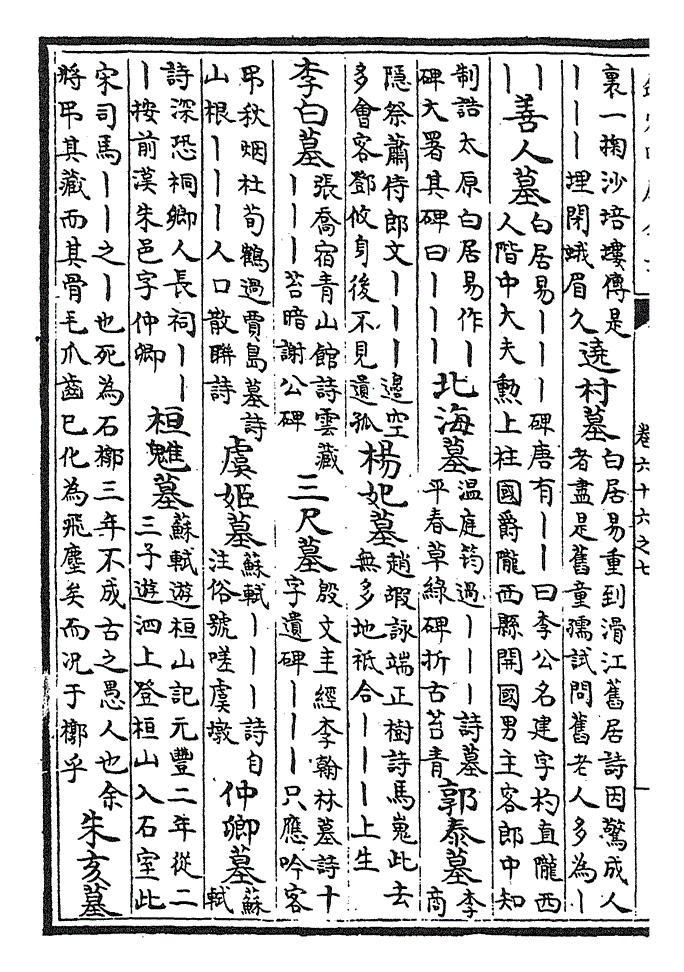 卷六十六之七
裏一掬沙培塿傳是丨丨丨埋閉蛾眉久 遶村墓 白居易重到滑江舊居詩因驚成人者盡是舊童孺試問舊老人多為丨
丨丨 善人墓 白居易丨丨丨碑唐有丨丨曰李公名建字杓直隴西人階中大夫勲上柱國爵隴西縣開國男主客郎中知
制誥太原白居易作丨碑大署其碑曰丨丨丨 北海墓 溫庭筠過丨丨丨詩墓平春草綠碑折古苔青 郭泰墓 李商
隱祭蕭侍郎文丨丨丨邊空多會客鄧攸身後不見遺孤 楊妃墓 趙嘏詠端正樹詩馬嵬此去無多地祗合丨丨丨上生
李白墓 張喬宿青山館詩雲藏丨丨丨苔暗謝公碑 三尺墓 殷文圭經李翰林墓詩十字遺碑丨丨丨只應吟客
弔秋烟杜荀鶴過賈島墓詩山根丨丨丨人口散聯詩 虞姬墓 蘇軾丨丨丨詩自注俗號嗟虞墩 仲卿墓 蘇軾
詩深恐桐鄉人長祠丨丨丨按前漢朱邑字仲卿 桓魋墓 蘇軾遊桓山記元豐二年從二三子遊泗上登桓山入石室此
宋司馬丨丨之丨也死為石槨三年不成古之愚人也余將弔其藏而其骨毛爪齒已化為飛塵矣而況于槨乎 朱亥墓